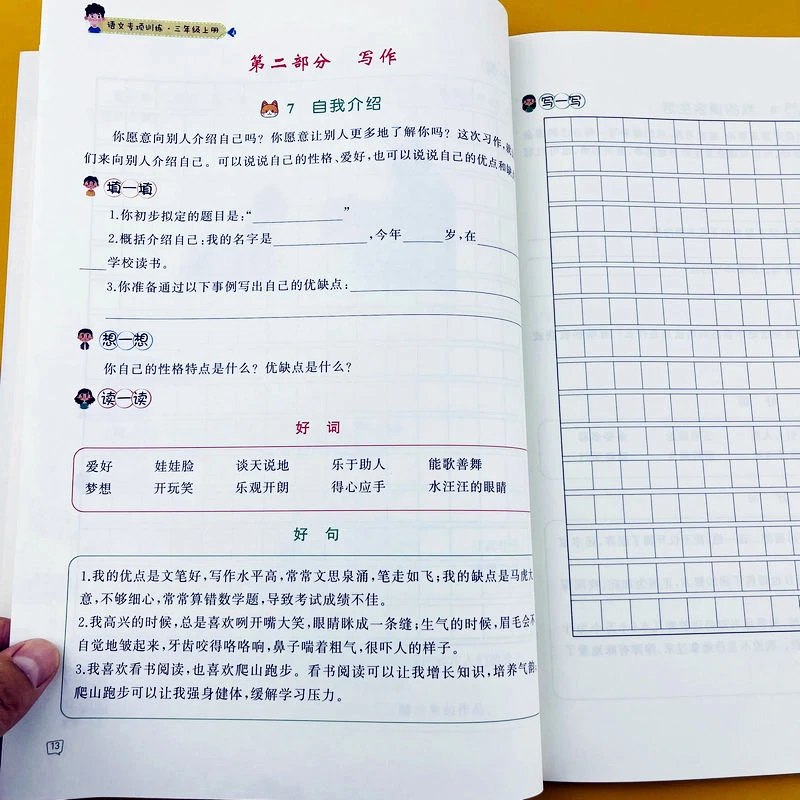 语文专项训练·三年级上册
第二部分 写作
7 自我介绍
你愿意向别人介绍自己吗？你愿意让别人更多地了解你吗？这次习作，就
们来向别人介绍自己。可以说说自己的性格、爱好，也可以说说自己的优点和缺
填一填
1.你初步拟定的题目是：“____________”
2.概括介绍自己：我的名字是____________，今年_____岁，在_____
____学校读书。
3.你准备通过以下事例写出自己的优缺点：____________
想一想
你自己的性格特点是什么？优缺点是什么？
读一读
好 词
爱好 娃娃脸 谈天说地 乐于助人 能歌善舞
梦想 开玩笑 乐观开朗 得心应手 水汪汪的眼睛
好 句
1.我的优点是文笔好，写作水平高，常常文思泉涌，笔走如飞；我的缺点是马虎大
意，不够细心，常常算错数学题，导致考试成绩不佳。
2.我高兴的时候，总是喜欢咧开嘴大笑，眼睛眯成一条缝；生气的时候，眉毛会不
自觉地皱起来，牙齿咬得咯咯响，鼻子喘着粗气，很吓人的样子。
3.我喜欢看书阅读，也喜欢爬山跑步。看书阅读可以让我增长知识，培养气
爬山跑步可以让我强身健体，缓解学习压力。
13
写一写